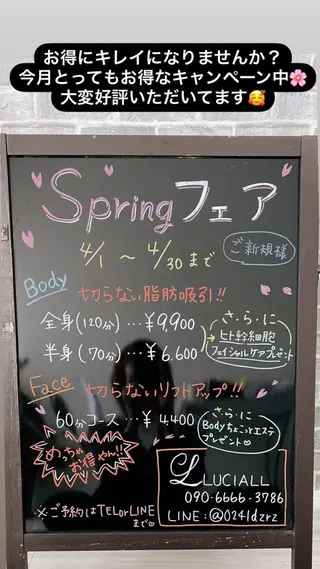 お得にキレイになりませんか？
今月とってもお得なキャンペーン中🌸
大変好評いただいてます🥰
Springフェア
4/1 ～ 4/30 まで
ご新規様
Body
切らない脂肪吸引!!
全身(120分)…¥9,900
半身(70分)…¥6,600
さ.ら.に
→ヒト幹細胞
フェイシャルケアプレゼント
Face
切らないリフトアップ!!
60分コース…¥4,400
さ.ら.に
Bodyちょこっとエステ
プレゼント♡
めっちゃ
お得やん!!
L LUCIALL
090-6666-3786
LINE:@0241dzrz
※ご予約はTELorLINE
まで♡